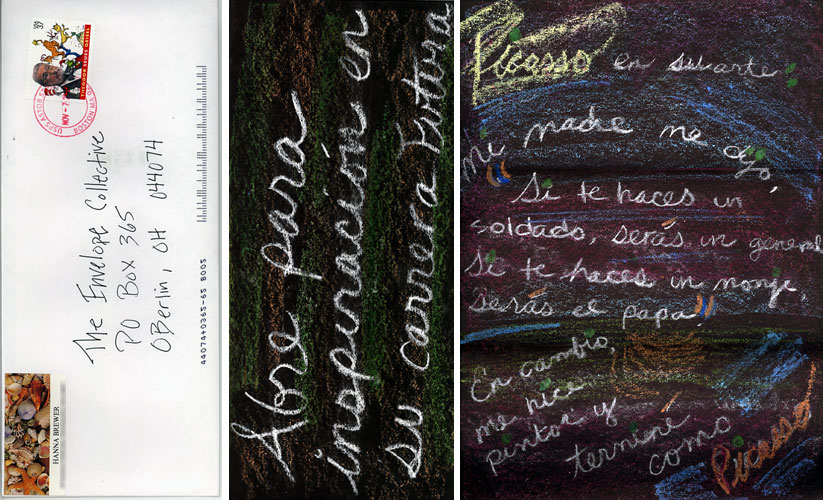 37
THEODOR SEUSS GEISEL
NOV-7
The Envelope Collective
PO Box 365
OBerlin, OH 044074
44074+0365-65 8005
HANNA BREWER
Abre para
inspiración en
su carrera Futura
Picasso en su arte:
Mi madre me oyó
"Si te haces un
soldado, serás un general
Si te haces un monje,
serás el papa"
En cambio,
me hice
pintor y
termine como
Picasso